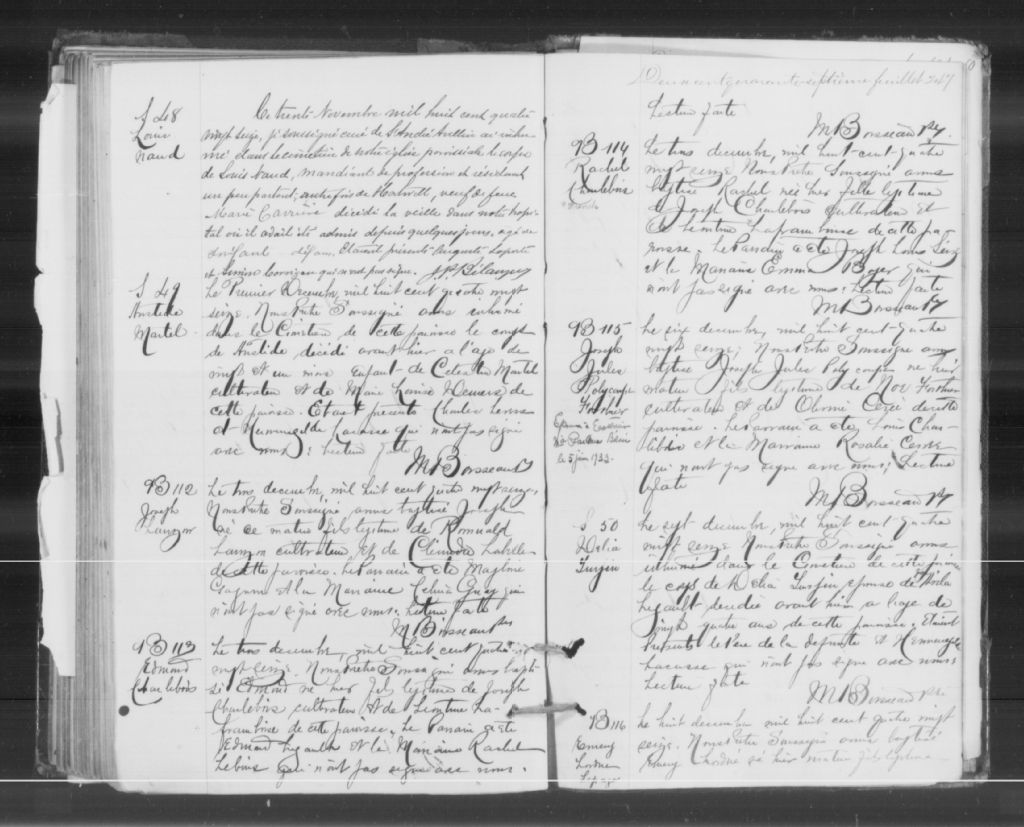 S 48
Louis
Naud
Ce trente Novembre mil huit cent quatre
vingt seize, je soussigné curé de St André Avellin ai inhu-
mé dans le cimetière de notre église paroissiale le corps
de Louis Naud, mendiant de profession et résidant
un peu partout, autrefois de Hartwell, veuf de feue
Marie Carrière décédé la veille dans notre hôpi-
tal où il avait été admis depuis quelques jours, agé de
soixante ans. Etaient présents Auguste Laporte
et Siméon Corrigan qui n'ont pas signé. J.P. Bélanger
S 49
Aristide
Martel
Le Premier Décembre, mil huit cent quatre vingt
seize. Nous Prêtre Soussigné avons inhumé
dans le Cimetière de cette paroisse le corps
de Aristide décédé avant hier a l'age de
vingt et un mois enfant de Martel
cultivateur et de Marie Louise Demers de
cette paroisse. Etaient présents Charles
et Hermenegilde Lacasse qui n'ont pas signé
avec nous; Lecture faite
M Boisseau Ptr
B 112
Joseph
Lauzon
Le trois decembre, mil huit cent quatre vingt seize,
Nous Prêtre Soussigné avons baptisé Joseph
né ce matin fils légitime de Romuald
Lauzon cultivateur et de Clémentine Labelle
de cette paroisse. Le Parrain a été Magloire
Gagnon et la Marraine Celina Guay qui
n'ont pas signé avec nous; Lecture faite
M Boisseau Ptre
B 113
Edmond
Charlebois
Le trois decembre, mil huit cent quatre
vingt seize. Nous Prêtre Soussigné avons bapti-
sé Edmond né hier fils légitime de Joseph
Charlebois cultivateur et de Leontine La-
framboise de cette paroisse. Le Parrain a été
Edmond Legault et la Marraine Rachel
Lebois qui n'ont pas signé avec nous.
Deux cent quarante septième feuillet 247
Lecture faite
M Boisseau Ptre
B 114
Rachel
Charlebois
Le trois decembre, mil huit-cent-quatre
vingt seize Nous Prêtre Soussigné avons
baptisé Rachel née hier fille légitime
de Joseph Charlebois cultivateur et
de Leontine Laframboise de cette pa-
roisse. Le Parrain a été Joseph Louis
et la Marraine Emma Boyer qui
n'ont pas signé avec nous; Lecture faite
M Boisseau Ptr
B 115
Joseph
Jules
Polycarpe
Fortier
le 5 juin 1933
Le six decembre, mil huit cent-quatre
vingt seize; Nous Prêtre Soussigné avons
baptisé Joseph Jules Polycarpe né hier
matin fils légitime de Noé Fortier
cultivateur et de Cerré de cette
paroisse. Le Parrain a été Louis Char-
lebois et la Marraine Rosalie Cerré
qui n'ont pas signé avec nous; Lecture
faite
M Boisseau Ptr
S 50
Délia
Turpin
Le sept decembre, mil huit cent quatre
vingt seize Nous Prêtre Soussigné avons
inhumé dans le Cimetière de cette paroisse
le corps de Délia Turpin épouse de
Legault décédée avant hier a l'age de
vingt quatre ans de cette paroisse; Etaient
Présents le Père de la défunte et Hermenegilde
Lacasse qui n'ont pas signé avec nous;
Lecture faite
M Boisseau Ptre
B 116
Emery
Le huit decembre mil huit cent quatre vingt
seize. Nous Prêtre Soussigné avons baptisé
Emery né hier matin fils légitime